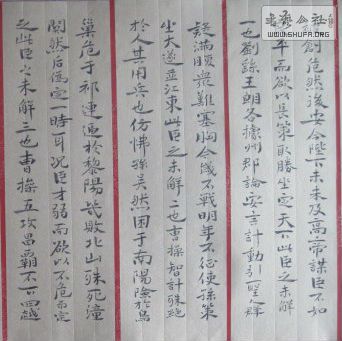 書藝公社
WWW.SHUFA.ORG
創危然後安今陛下未及高帝謀臣不如
良平而欲以長策取勝坐定天下此臣之未解
一也劉繇王朗各據州郡論安言計動引聖人群
疑滿腹眾難塞胸今歲不戰明年不征使孫策
坐大遂並江東此臣之未解二也曹操智計殊絕
於人其用兵也仿佛孫吳然困于南陽險於烏
巢危于祁連逼於黎陽幾敗北山殊死潼
關然后偽定一時耳況臣才弱而欲以不危而定
之此臣之未解三也曹操五攻昌霸不下四越